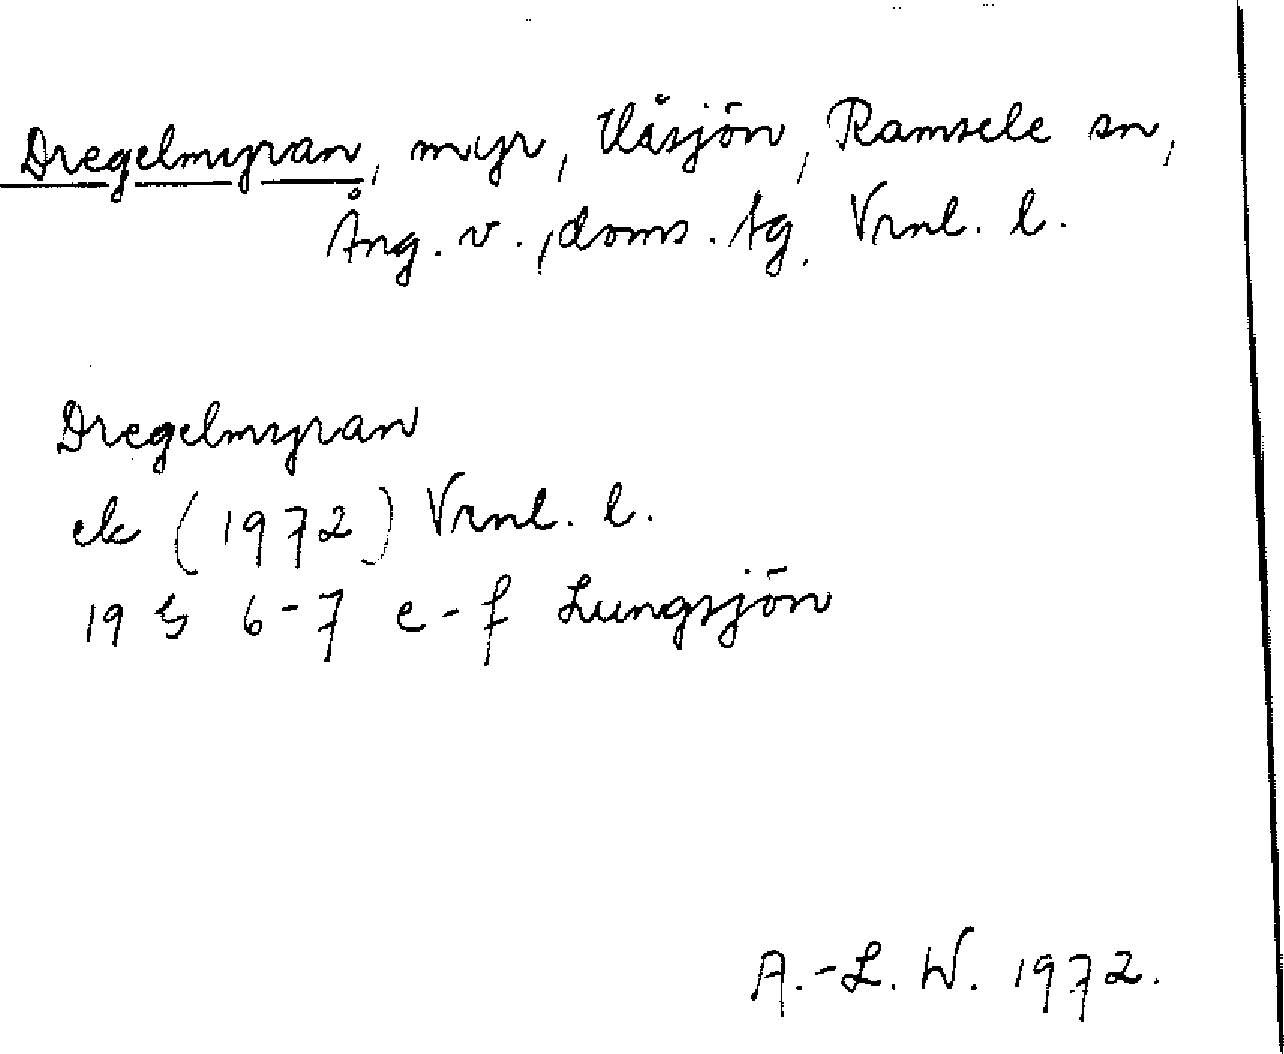 Dregelmyran, myr, Vläsjön, Ramsele sn,
Ång. v., doms. tg. Vrnl. l.
Dregelmyran
ek (1972) Vrnl. l.
19 G 6-7 e-f Lungsjön
A.-L. W. 1972.